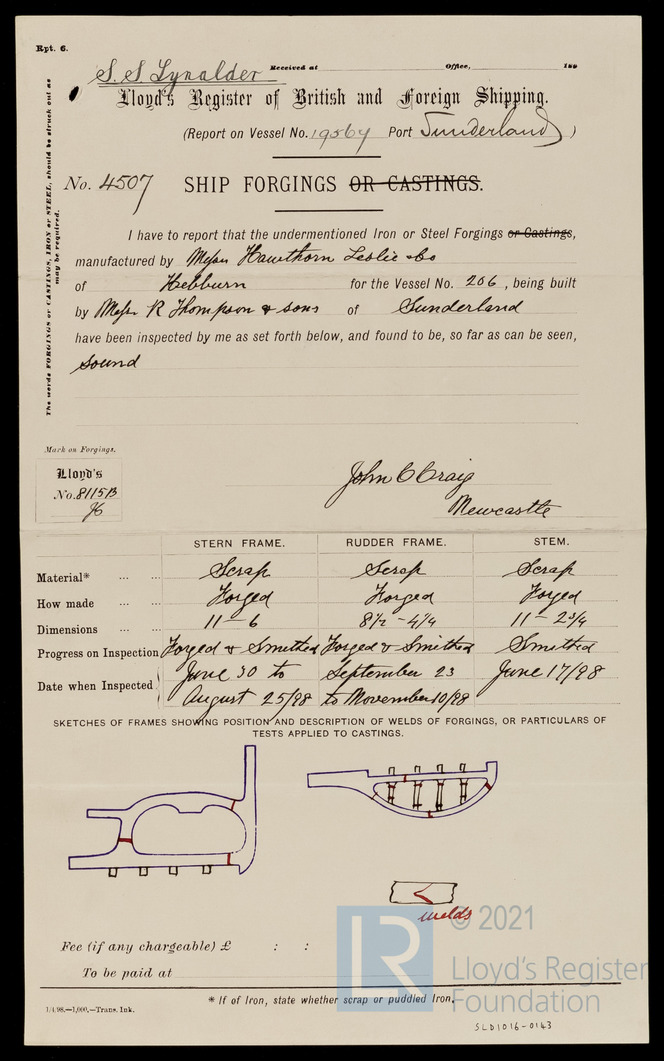 Rpt. 6.
S. S. Lynalder
Received at Office, 189
Lloyd's Register of British and Foreign Shipping.
(Report on Vessel No. 19564 Port Sunderland)
The words FORGINGS or CASTINGS, IRON or STEEL, should be struck out as may be required.
No. 4507 SHIP FORGINGS OR CASTINGS.
I have to report that the undermentioned Iron or Steel Forgings or Castings,
manufactured by Messrs Hawthorn Leslie & Co
of Hebburn for the Vessel No. 206, being built
by Messrs R Thompson & Sons of Sunderland
have been inspected by me as set forth below, and found to be, so far as can be seen,
sound
Mark on Forgings.
Lloyd's
No. 8115B
John C Craig
Newcastle
STERN FRAME. RUDDER FRAME. STEM.
Material* ... ... Scrap Scrap Scrap
How made ... ... Forged Forged Forged
Dimensions ... ... 11 - 6 8½ - 4¼ 11 - 2¾
Progress on Inspection Forged & Smithed Forged & Smithed Smithed
Date when Inspected June 30 to August 25/98 September 23 to November 10/98 June 17/98
SKETCHES OF FRAMES SHOWING POSITION AND DESCRIPTION OF WELDS OF FORGINGS, OR PARTICULARS OF
TESTS APPLIED TO CASTINGS.
welds
Fee (if any chargeable) £ : :
To be paid at
* If of Iron, state whether scrap or puddled Iron.
1/4.98.—1,000,—Trans. Ink.
SLD1016-0143
LR
© 2021
Lloyd's Register
Foundation